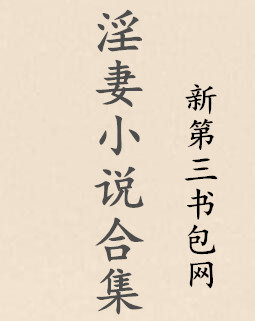 淫妻小说合集
新第三书包网